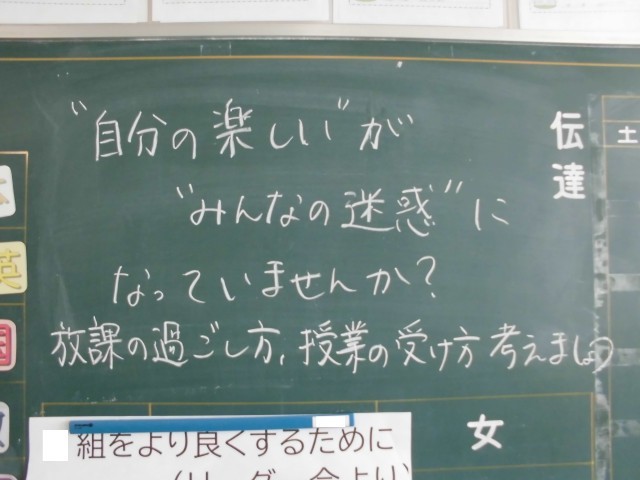 “自分の楽しい”が
“みんなの迷惑”に
なっていませんか?
放課の過ごし方、授業の受け方考えましょう
伝達
土
英
国
女
組をより良くするために